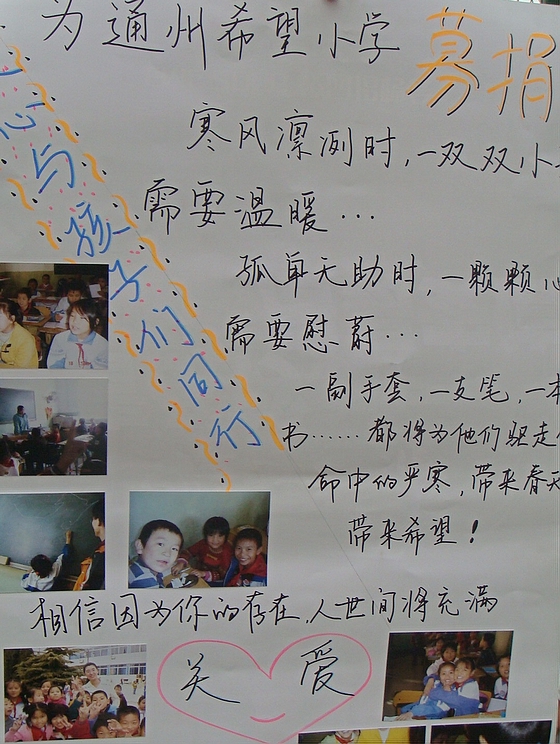 为通州希望小学募捐
心与孩子们同行
寒风凛冽时,一双双小
需要温暖...
孤单无助时,一颗颗心
需要慰蔚...
一副手套,一支笔,一本
书......都将为他们驱走
命中的严寒,带来春天
带来希望!
相信因为你的存在,人世间将充满
关爱